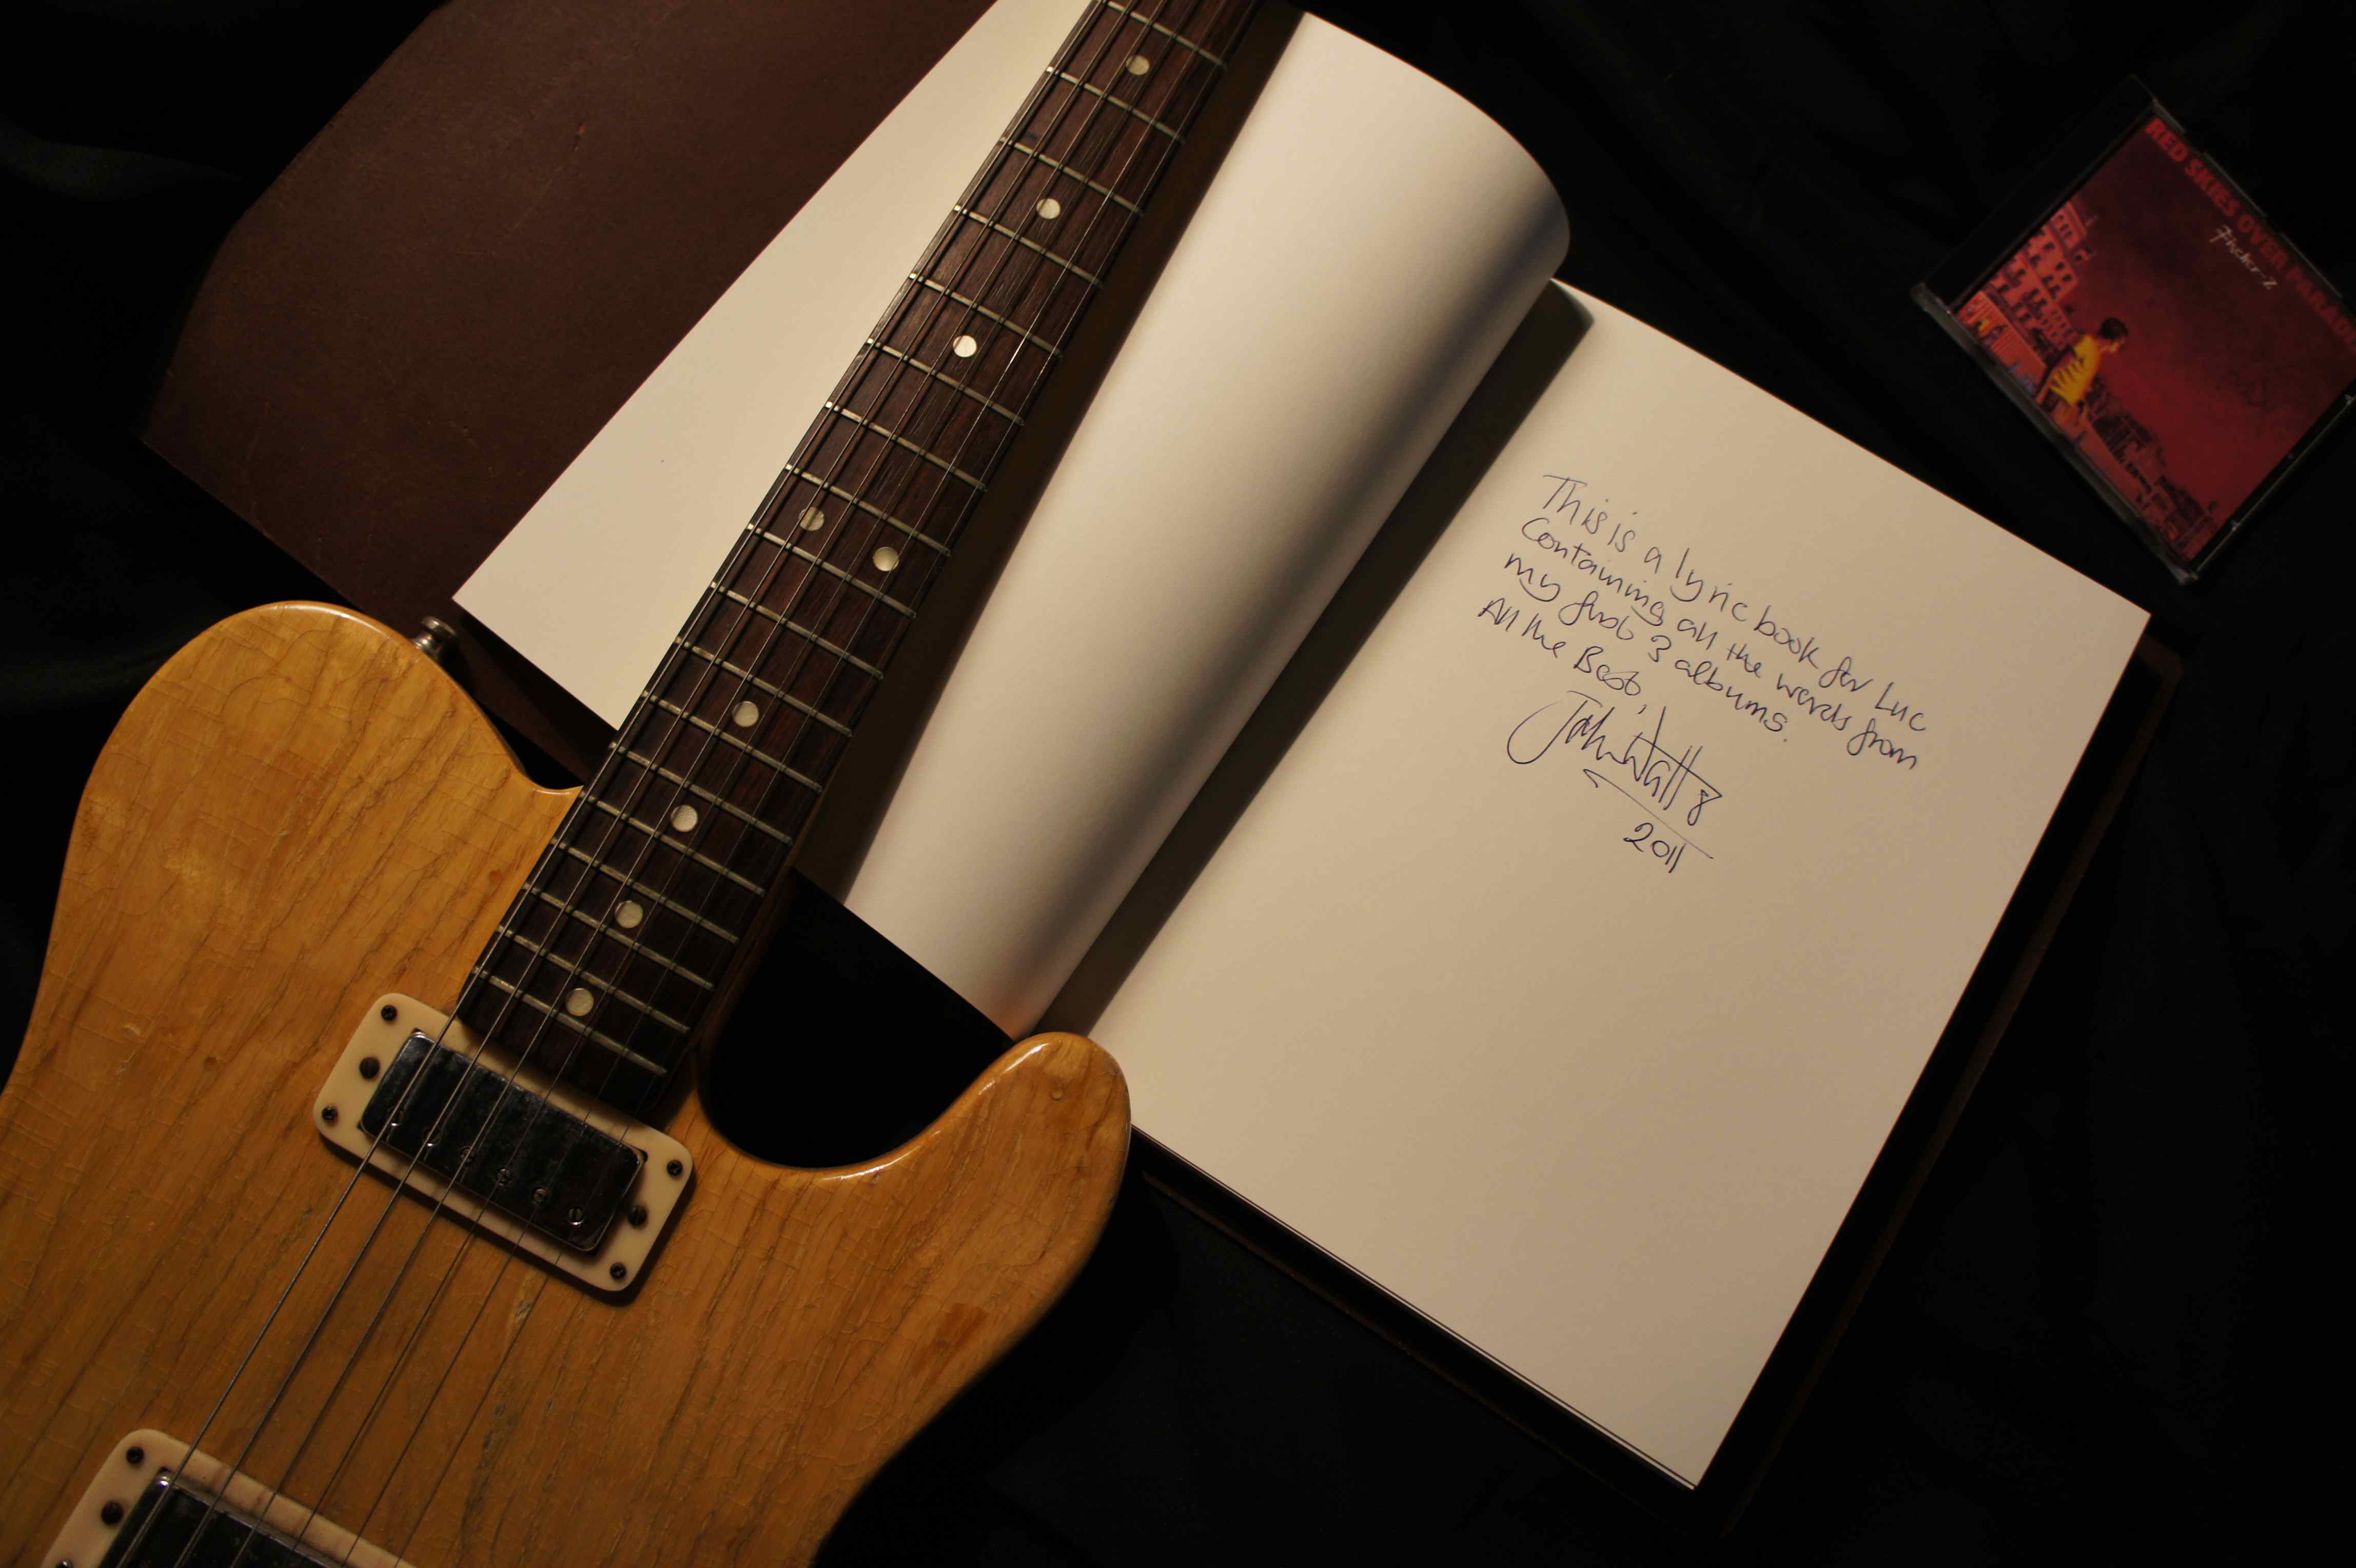 This is a lyric book for Luc
Containing all the words from
my first 3 albums.
All the Best,
John Watts
2011
RED SKIES OVER PARADISE
Fischer-Z